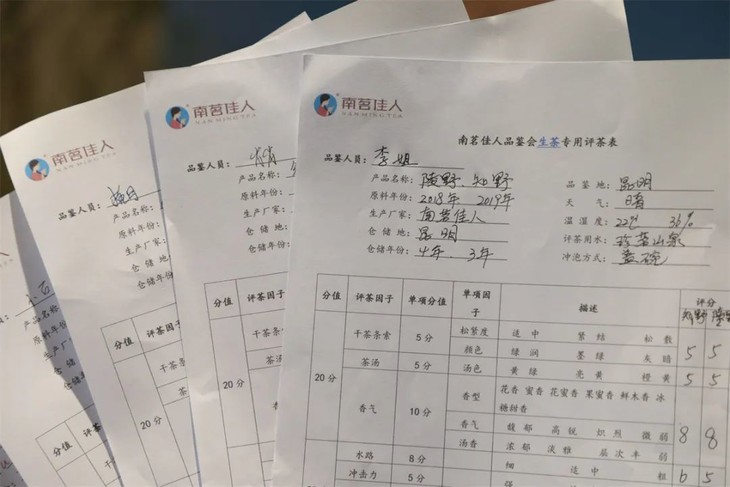 南茗佳人
NAN MING TEA
南茗佳人品鉴会生茶专用评茶表
品鉴人员： 李姐
产品名称： 陵野、知野
品 鉴 地： 昆明
原料年份： 2018年 2019年
天 气： 晴
生产厂家： 南茗佳人
温 湿 度： 22℃ 36%
仓 储 地： 昆明
评茶用水： 山泉
仓储年份： 4年、3年
冲泡方式： 盖碗
分值 评茶因子 单项分值 单项因子 描述 评分
知野 陵野
20分
干茶条索 5分 松紧度 适中 紧结 松散
颜色 绿润 墨绿 灰暗 5 5
茶汤 5分 汤色 黄绿 亮黄 橙黄 5 5
香气 10分 香型 花香 蜜香 花蜜香 果蜜香 鲜木香 冰糖甜香
香气 馥郁 高锐 炽烈 微弱 8 8
汤香 浓郁 淡雅 层次丰 弱
水路 8分 细 适中 粗 6 5
冲击力 5分 强
南茗佳人
NAN MING TEA
品鉴人员：
产品名称：
原料年份：
生产厂家：
仓 储 地：
仓储年份：
分值 评茶因子
20分
干茶条索
茶汤
香气
南茗佳人
NAN MING TEA
品鉴人员：
产品名称：
原料年份：
生产厂家：
仓 储 地：
仓储年份：
分值 评茶因子
干茶条索
茶
20分